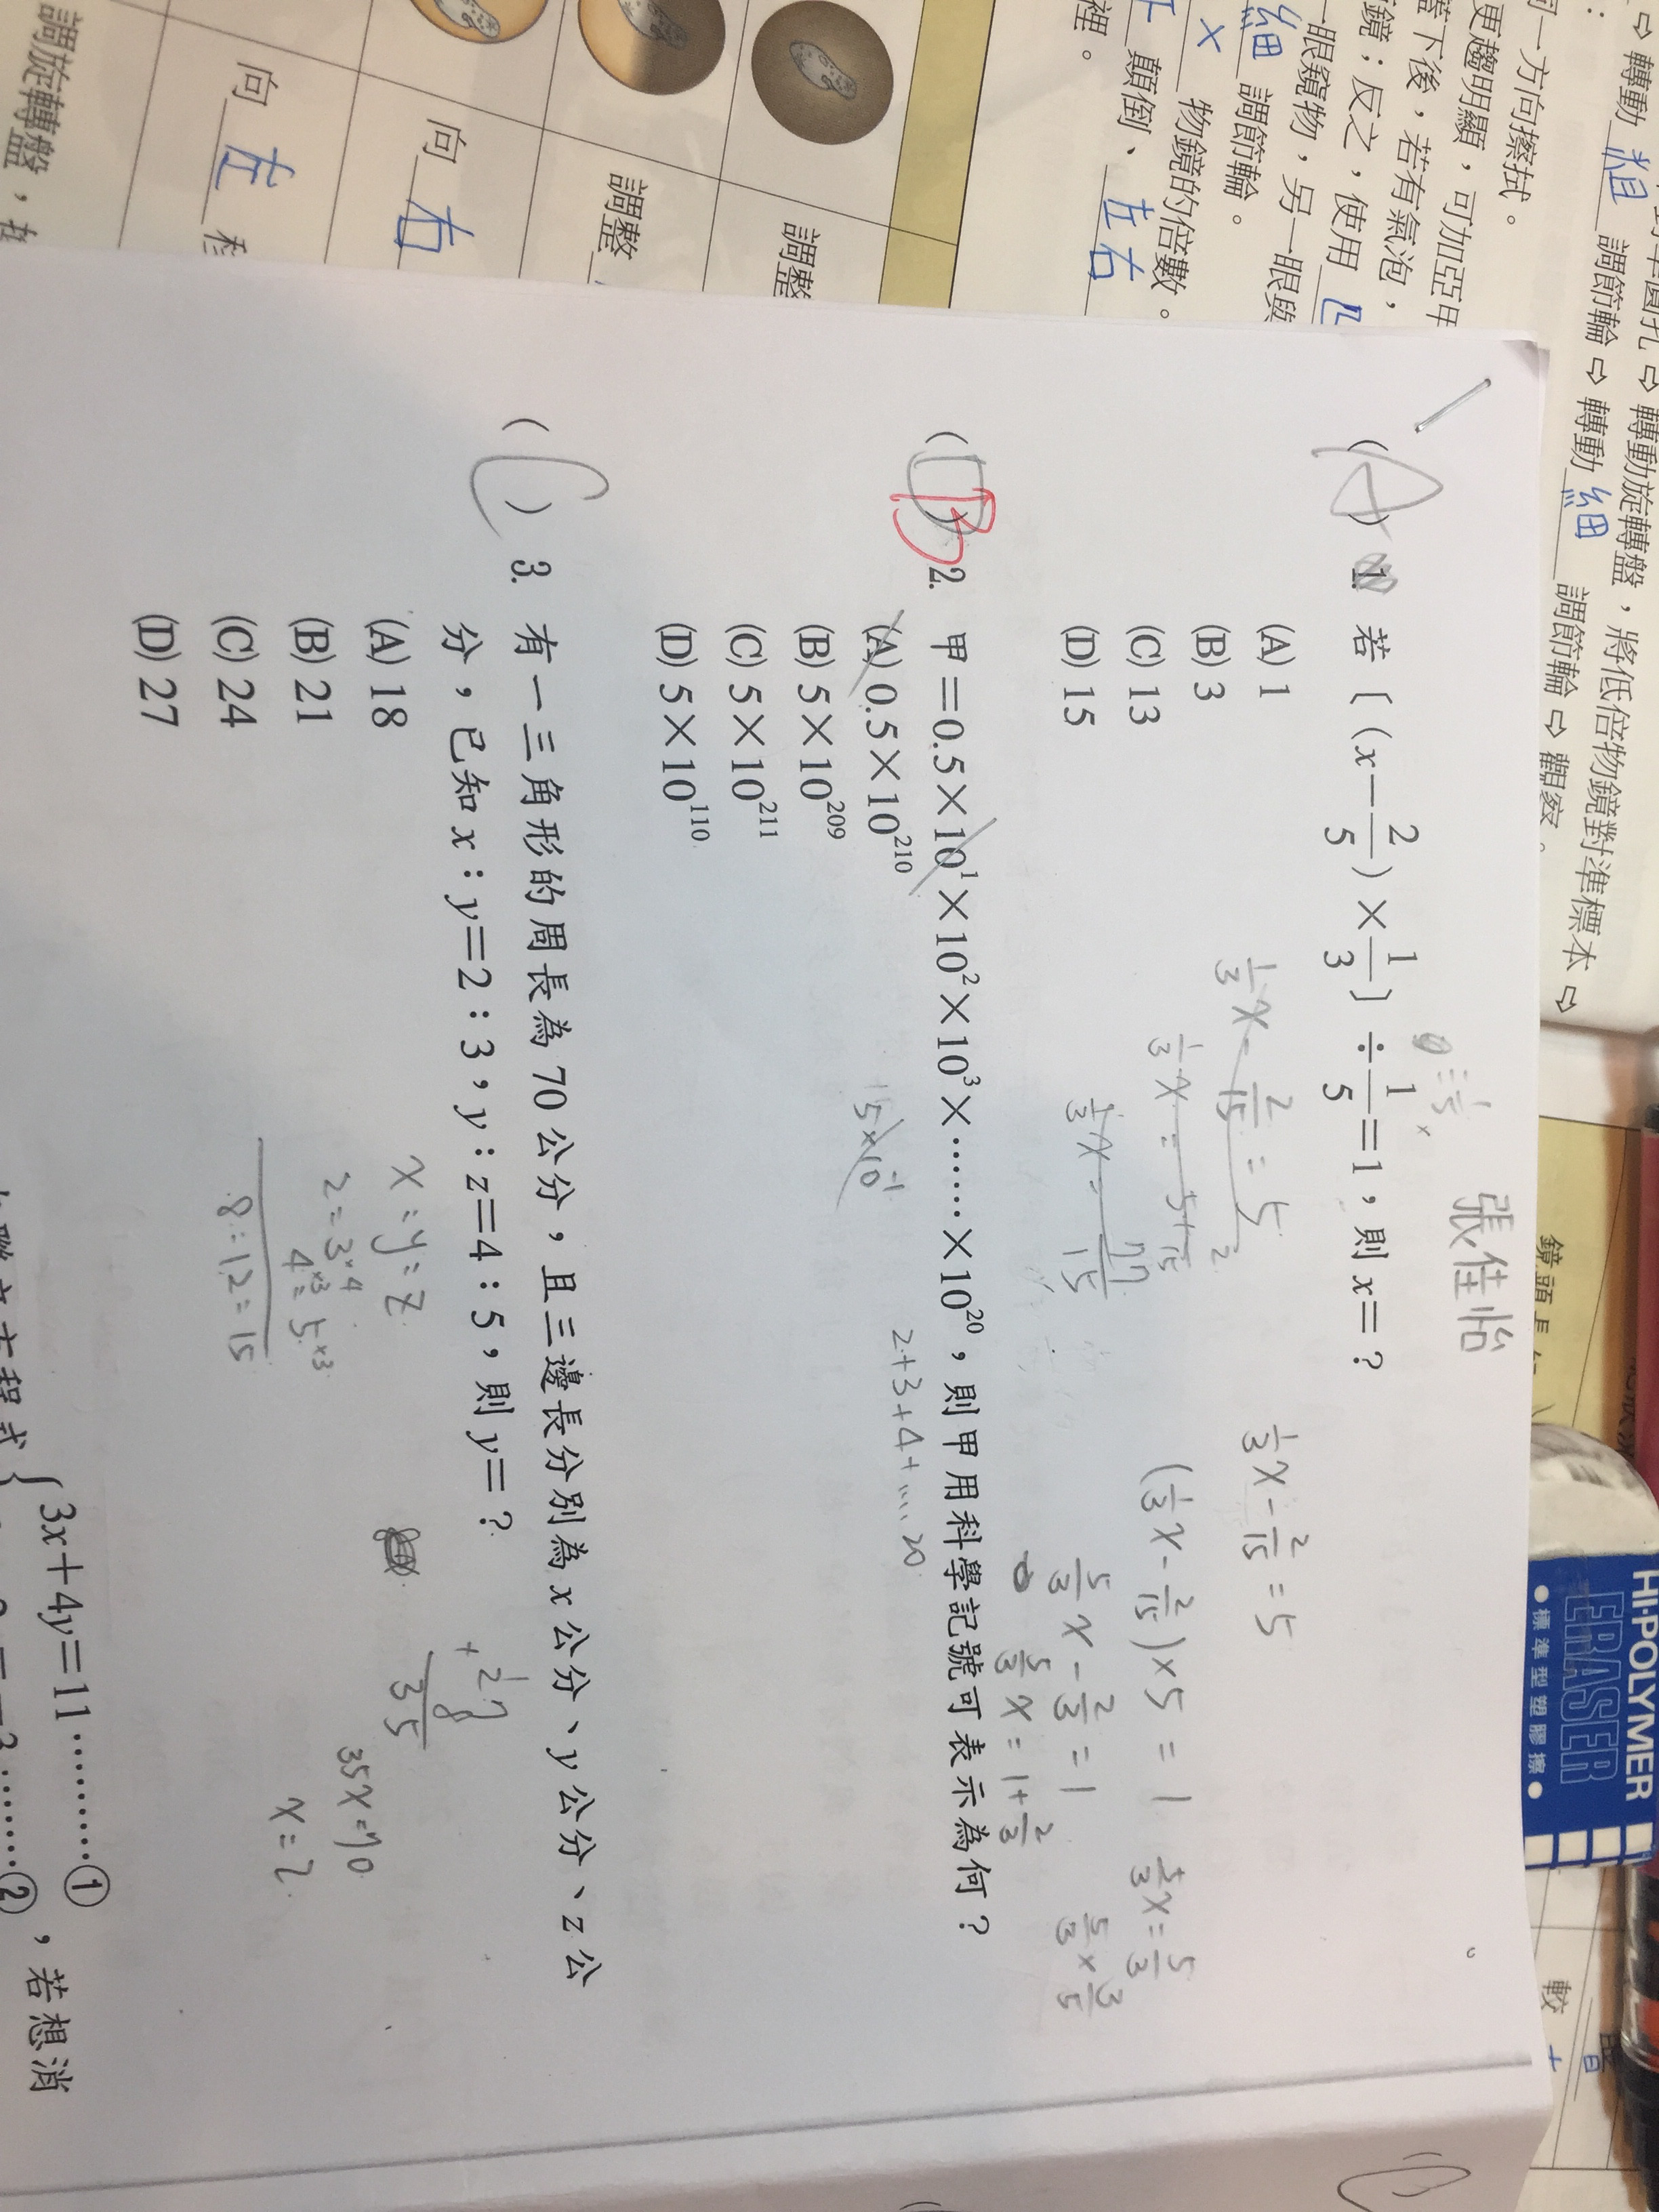 張佳怡
(A) 1. 若〔(x－2/5)×1/3〕÷1/5＝1，則 x＝？
(A) 1
(B) 3
(C) 13
(D) 15
1/3 x - 2/15 = 5
(1/3 x - 2/15)×5 = 1
5/3 x - 2/3 = 1
5/3 x = 1+2/3
5/3 x = 5/3
5/3 × 3/5
(B) 2. 甲＝0.5×10¹×10²×10³×……×10²⁰，則甲用科學記號可表示為何？
(A) 0.5×10²¹⁰
(B) 5×10²⁰⁹
(C) 5×10²¹¹
(D) 5×10¹¹⁰
5×10⁻¹
2+3+4+...20
(C) 3. 有一三角形的周長為 70 公分，且三邊長分別為 x 公分、y 公分、z 公
分，已知 x：y＝2：3，y：z＝4：5，則 y＝？
(A) 18
(B) 21
(C) 24
(D) 27
x = y = z
2 = 3×4
4×3 = 5×3
8 = 12 = 15
27
+ 8
35
35x=70
x=2
3x＋4y＝11………①
②，若想消
轉動 粗 調節輪⇨轉動 細 調節輪⇨觀察。
轉動旋轉盤，將低倍物鏡對準標本⇨
一方向擦拭。
更趨明顯，可加亞甲
蓋下後，若有氣泡，
鏡；反之，使用
一眼窺物，另一眼與
細 調節輪。
× 物鏡的倍數。
顛倒、左右
裡。
調整
調整
向 右
向 左
調旋轉盤，
HI-POLYMER
ERASER
●標準型塑膠擦●
較